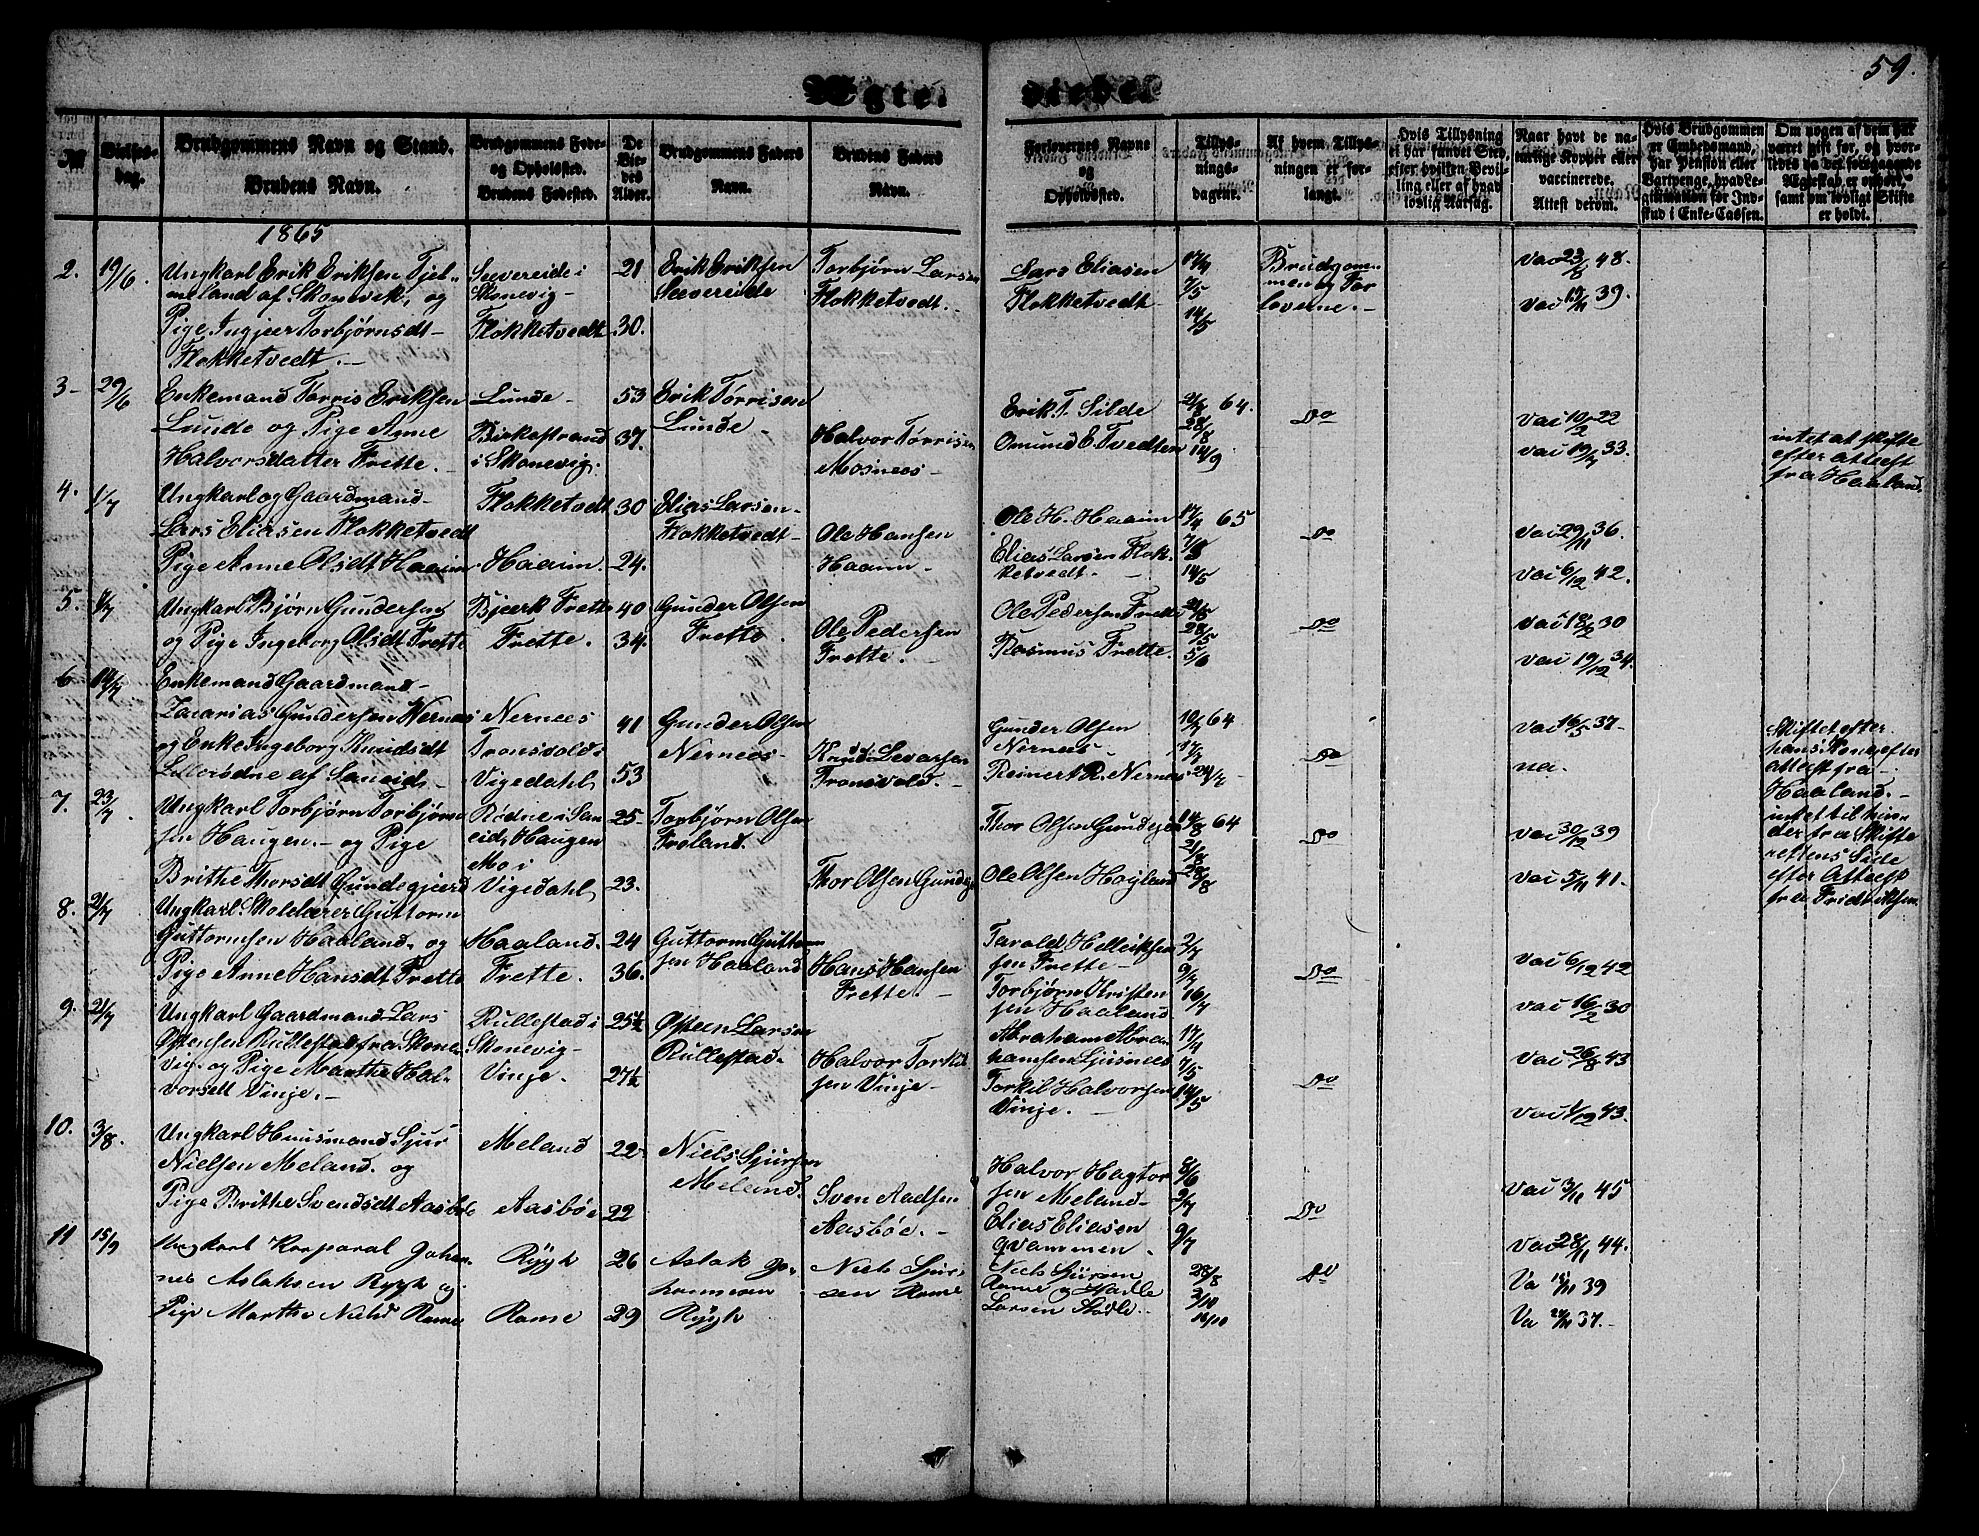 59.
Ægte- viede.
No
Vielses-
dag.
Brudgommens Navn og Stand.
Brudens Navn.
Brudgommens Føde-
og Opholdsted.
Brudens Fødested.
De
Vie-
des
Alder.
Brudgommens Faders
Navn.
Brudens Faders
Navn.
Forlovernes Navne
og
Opholdssted.
Tillys-
nings-
dagene.
Af hvem Tillys-
ningen er for-
langt.
Hvis Tillysning
ei har fundet Sted,
efter hvilken Bevil-
ling eller af hvad
lovlig Aarsag.
Naar havt de na-
turlige Kopper eller
vaccinerede.
Attest derom.
Hvis Brudgommen
er Embedsmand,
har Pension eller
Vartpenge, hvad Le-
gitimation for Ind-
skud i Enke-Cassen.
Om nogen af dem har
været gift før, og hvor-
ledes da det foregaaende
Ægteskab er ophørt,
samt om lovligt Skifte
er holdt.
1865
2. 19/6. Ungkarl Erik Eriksen Tjel- Sævereide i 21 Erik Eriksen Torbjørn Larsen Lars Eliasen 17/4 Brudgom- vac 23/6 48.
meland af Skonevik, og Skonevig- Sævereide Flokketvedt. Flokketvedt 7/5 men og For
Pige Ingjeer Torbjørnsdt- Flokketvedt 30. 14/5 loverne.- vac 19/11 39.
Flokketvedt.-
3- 29/6 Enkemand Tørris Eriksen Lunde- 53 Erik Tørrisen Erik T. Silde 21/8 64. Do
Lunde og Pige Anne Birkestrand 37. Lunde- Halvor Tørrisen Omund E. Tvedten 28/8 vac 10/2 22 intet at skifte
Halvorsdatter Frette.- i Skonevig. Mosnees- 14/9 vac 19/7 33. efter Attest
fra Haaland.
4. 1/7 Ungkarl og Gaardmand- Flokketvedt 30 Elias Larsen- Ole H. Haaim 17/4 65 Do
Lars Eliasen Flokketvedt Flokketvedt- Ole Hansen Elias Larsen Flok- 7/5 vac 29/11 36.
Pige Anne Olsdt Haaim Haaim. 24. Haaim- ketvedt.- 14/5 vac 6/12 42.
5. 1/7 Ungkarl Bjørn Gundersen Bjeerk Frette 40 Gunder Olsen Ole Pedersen Frette 21/5 vac 18/2 30
og Pige Ingeborg Olsdt Frette Frette. 34. Frette. Ole Pedersen Rasmus Frette. 28/5 Do
Frette. 5/6 vac 19/12 34.
6 Enkemand Gaardmand-
Zacarias Gundersen Nernes Nernees 41 Gunder Olsen Gunder Olsen 10/7 64 vac 16/5 37- Skiftet efter
og Enke Ingeborg Knudsdt Tronsvold i Nernees- Knud Levarsen Nernees- 17/7 Do hans Kone efter
Lillerødne af Saneid- Vigedahl, 53 Tronsvold.- Reinert R. Nernes 24/7 na. attest fra-
Haaland.-
7. 23/7. Ungkarl Torbjørn Torbjørn Rødne i San 25- Torbjørn Olsen Thor Olsen 14/8 64 Do vac 30/12 39 intet til hin-
sen Haugen.- og Pige eid, Haugen Froland. 21/8 der fra Skifte
Brithe Thorsdt Gundegjerd Mo i Vigedahl, 23. Thor Olsen Ole Olsen Høyland 28/8 vac 5/11 41. rettens Side
efter Attest
fra
8. 2/7 Ungkarl Skolelærer Guttorm
Guttormsen Haaland. og Haaland. 24 Guttorm Guttorm Tarald Helliksen 2/7
Pige Anne Hansdt Frette Frette. 36. sen Haaland Hans Hansen sen Frette- 9/7 Do vac 6/12 42
Frette.- Torbjørn Kristen 16/7
9. 21/7 Ungkarl Gaardmand Lars Rullestad i 25½ Østen Larsen sen Haaland vac 16/2 30
Østensen Rullestad fra Skone- Skonevig- Rullestad. Abraham Abra 17/4
vig. og Pige Marthe Hal- Vinje. 27½ Halvor Torkil hamsen Ljusnees 7/5 Do vac 26/8 43
vorsdt Vinje.- sen Vinje- Torkil Halvorsen 14/5
Vinje.- vac 1/12 43.
10. 3/8. Ungkarl Huusmand Sjur Meland 22 Niels Sjursen Halvor Hagtor 8/6
Nielsen Meland. og Meland. sen Meland- 2/7 vac 3/11 45
Pige Brithe Svendsdt Aasbøe Aasbøe 22 Sven Aadsen Elias Eliasen 9/7 Do
Aasbøe.- Qvammen. vac 28/11 44.
11 15/9 Ungkarl Korporal Johan- Rygh 26 Aslak Jo- Niels Sjur- Niels Sjursen 28/8 Do Va 15/11 39
nes Aslaksen Rygh og hannesen sen Rame Rame og Stødle 3/10
Pige Marthe Nielsd Rame Rame 29 Rygh Larsen Stødle.- Va 37.-